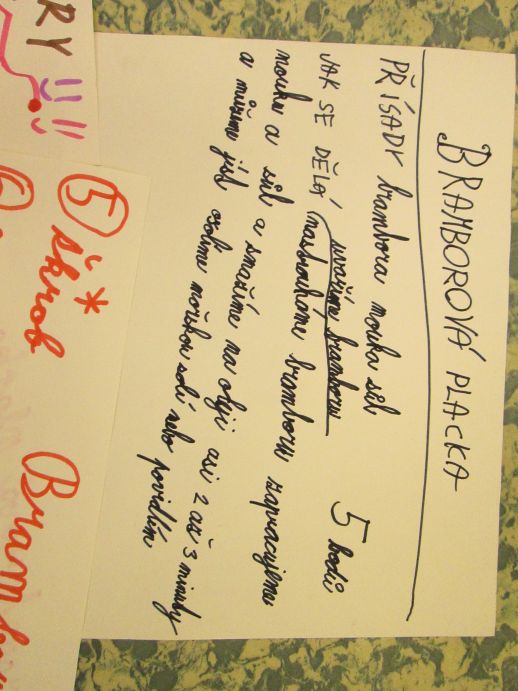 BRAMBOROVÁ PLACKA
PŘÍSADY brambora mouka sůl
5 bodů
uvaříme bramboru
JAK SE DĚLÁ nastrouháme bramboru zapracujeme
mouku a sůl a smažíme na oleji asi 2 až 3 minuty
a můžeme jíst osolíme mořskou solí nebo povidlím
RY !!!
5 * škrob
Bram